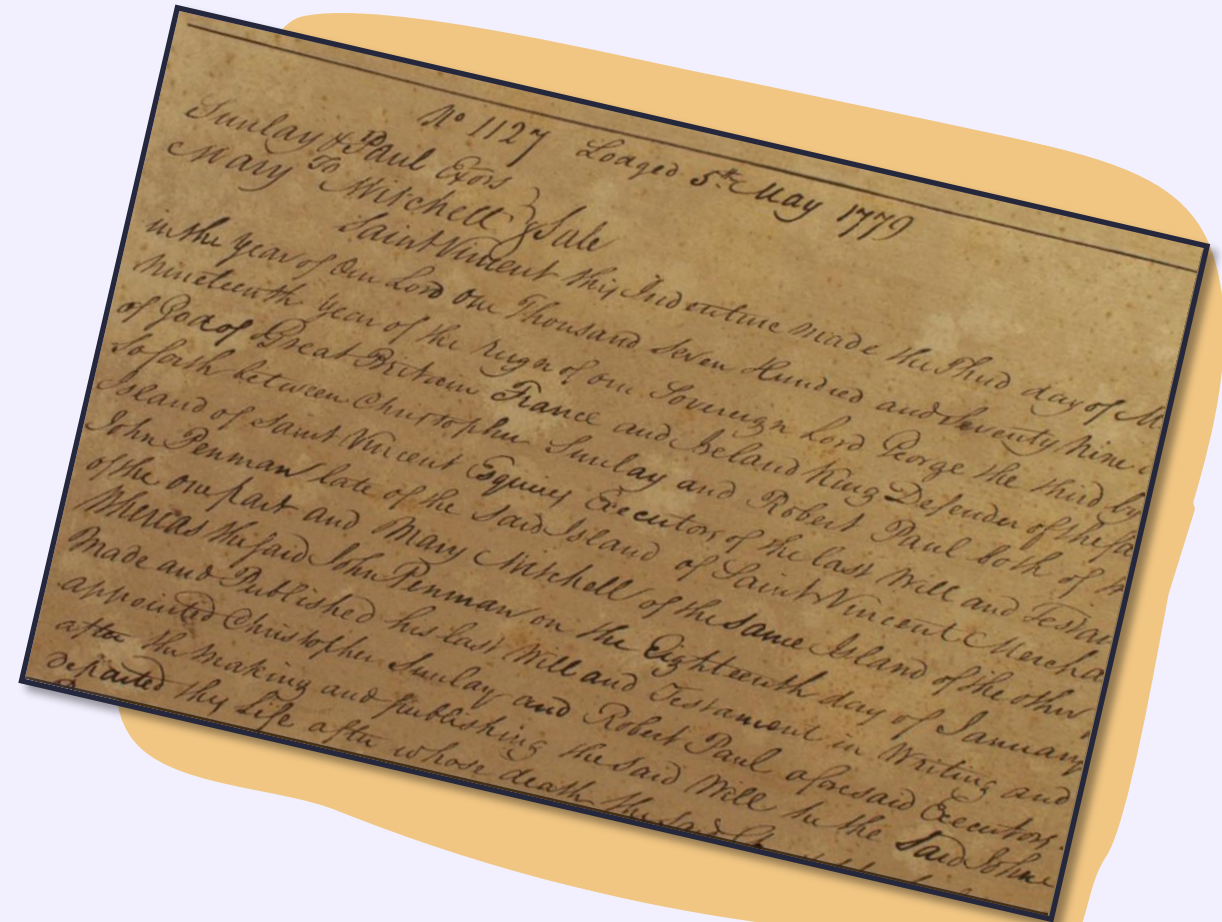 No 1127 Lodged 5th May 1779
Sunlay & Paul Exors
To
Mary Mitchell } Sale
Saint Vincent this Indenture made the Third day of M
in the year of Our Lord one Thousand Seven Hundred and Seventy Nine
nineteenth year of the reign of our Sovereign Lord George the third by
of God of Great Britain France and Ireland King Defender of the fa
So forth between Christopher Sunlay and Robert Paul both of th
Island of Saint Vincent Esquires Executors of the last Will and Testam
John Penman late of the Said Island of Saint Vincent Mercha
of the one part and Mary Mitchell of the same Island of the other
Whereas the said John Penman on the Eighteenth day of January
made and Published his last Will and Testament in Writing and
appointed Christopher Sunlay and Robert Paul aforesaid Executors.
after the making and publishing the said Will he the Said John
departed this Life after whose death the said